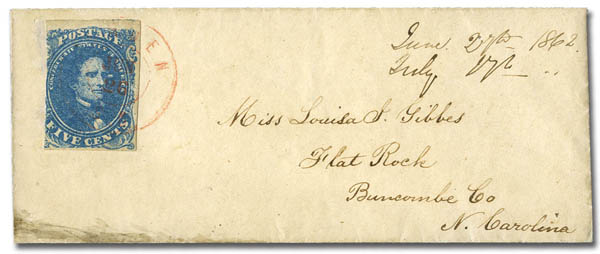 POSTAGE
CONFEDERATE STATES OF AMERICA
FIVE CENTS
EN
June. 27th 1862.
July 17th ..
Miss Louisa S. Gibbes
Flat Rock
Buncombe Co
N. Carolina